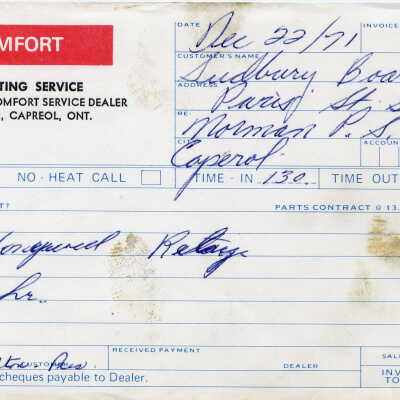 OMFORT
DATE Dec 22/71 INVOICE
TING SERVICE
OMFORT SERVICE DEALER
, CAPREOL, ONT.
CUSTOMER'S NAME
Sudbury Boa
ADDRESS
Paris St. S
RE:
Norman P.S.
CI
Caperol
ACCOUN
NO-HEAT CALL TIME-IN 130 TIME OUT
T? PARTS CONTRACT @ 13.
hr.
CUSTOMER
RECEIVED PAYMENT
DEALER
SAL
cheques payable to Dealer.
INV
TO